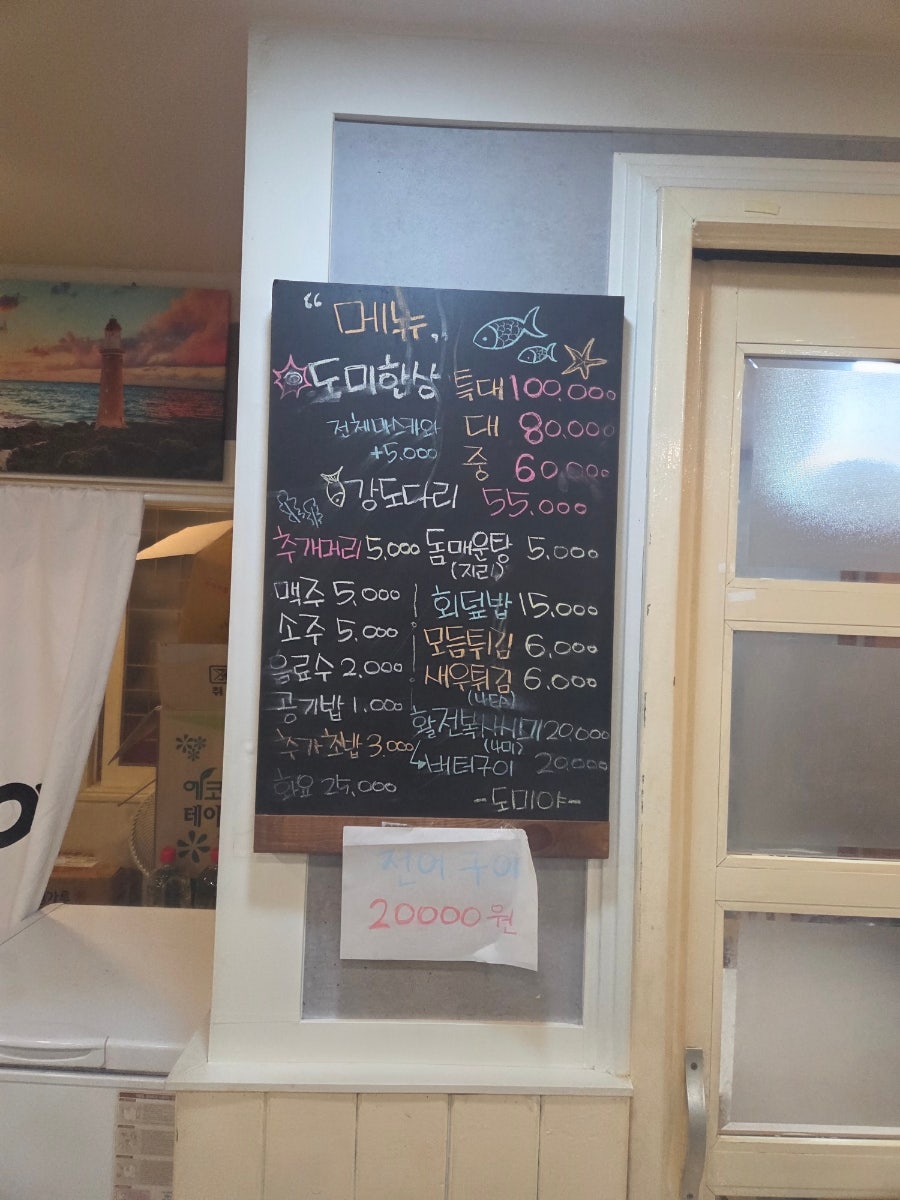 “ 메뉴 „
도미한상 특대 100,000
전체마스까와 대 80,000
+5,000 중 60,000
강도다리 55,000
추개머리 5,000 돔매운탕 5,000
(지리)
맥주 5,000 회덮밥 15,000
소주 5,000 모듬튀김 6,000
음료수 2,000 새우튀김 6,000
공기밥 1,000 활전복사시미 20,000
추가초밥 3,000 버터구이 20,000
화요 25,000 -도미야-
전어 구이
20000원
에코
테이